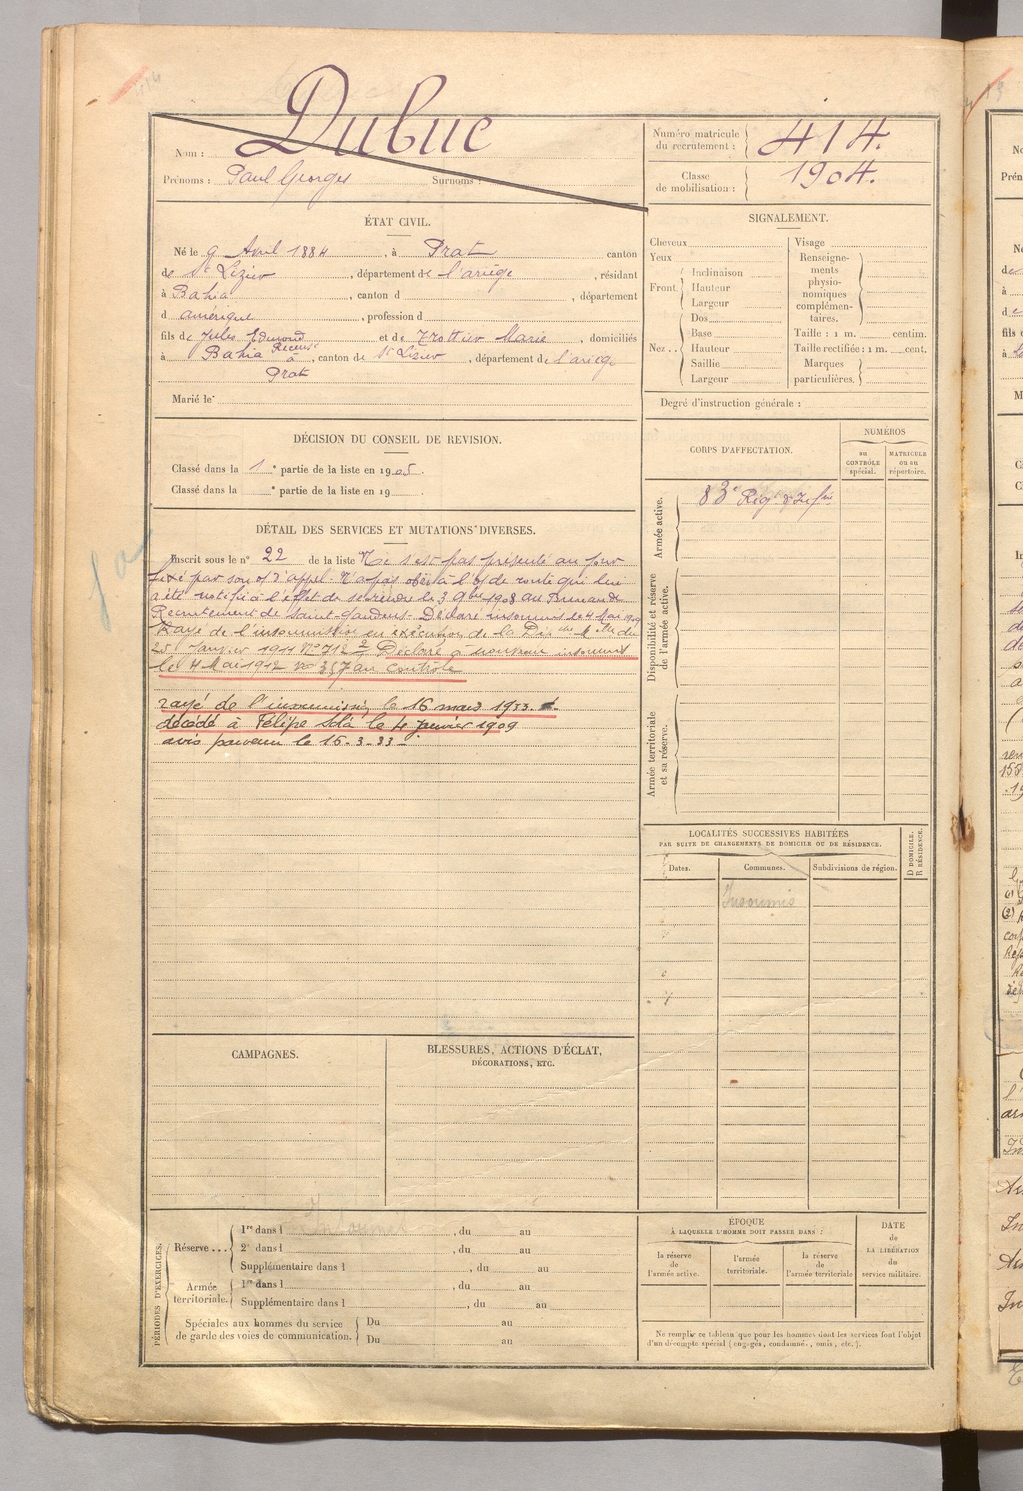 414
Nom : Dubuc
Prénoms : Paul Georges Surnoms :
Numéro matricule du recrutement : 414.
Classe de mobilisation : 1904.
ÉTAT CIVIL.
Né le 9 Avril 1884, à Prat canton
de St Lizier, département de l'ariège, résidant
à Bahia, canton d , département
d amérique, profession d
fils de Jules Edmond et de Trottier Marie, domiciliés
à Bahia Recensé à Prat, canton de St Lizier, département de l'ariège
Marié le
SIGNALEMENT.
Cheveux
Yeux
Front. Inclinaison
Hauteur
Largeur
Nez.. Dos
Base
Hauteur
Saillie
Largeur
Visage
Renseignements physionomiques complémentaires.
Taille : 1 m. centim.
Taille rectifiée : 1 m. cent.
Marques particulières.
Degré d'instruction générale :
DÉCISION DU CONSEIL DE REVISION.
Classé dans la 1e partie de la liste en 1905.
Classé dans la e partie de la liste en 19
DÉTAIL DES SERVICES ET MUTATIONS DIVERSES.
Inscrit sous le n° 22 de la liste Ne s'est pas présenté au jour
fixé par son o/ d'appel. N'a pas obéi à l'o/ de route qui lui
a été notifié à l'effet de se rendre le 3 9bre 1908 au Bureau de
Recrutement de Saint-Gaudens. Déclaré insoumis le 4 Mai 1909
Rayé de l'insoumission en exécution de la Don mlle du
25 Janvier 1911 No 712 Déclaré à nouveau insoumis
le 4 Mai 1912 no 357 au contrôle
rayé de l'insoumission le 16 mars 1933.
décédé à Félipe Solá le 4 janvier 1909
avis parvenu le 15-3-33 -
CORPS D'AFFECTATION.
NUMÉROS
au CONTRÔLE spécial.
MATRICULE ou au répertoire.
Armée active.
83e Régt d'Infrie
Disponibilité et réserve de l'armée active.
Armée territoriale et sa réserve.
LOCALITÉS SUCCESSIVES HABITÉES
PAR SUITE DE CHANGEMENTS DE DOMICILE OU DE RÉSIDENCE.
Dates.
Communes.
Subdivisions de région.
D DOMICILE.
R RÉSIDENCE.
Insoumis
CAMPAGNES.
BLESSURES, ACTIONS D'ÉCLAT,
DÉCORATIONS, ETC.
PÉRIODES D'EXERCICES.
Réserve... 1re dans l Insoumis, du au
2e dans l , du au
Supplémentaire dans l , du au
Armée territoriale. 1re dans l , du au
Supplémentaire dans l , du au
Spéciales aux hommes du service de garde des voies de communication. Du au
Du au
ÉPOQUE
À LAQUELLE L'HOMME DOIT PASSER DANS :
la réserve de l'armée active.
l'armée territoriale.
la réserve de l'armée territoriale
DATE de LA LIBÉRATION du service militaire.
Ne remplir ce tableau que pour les hommes dont les services font l'objet
d'un décompte spécial (engagés, condamné, omis, etc.).